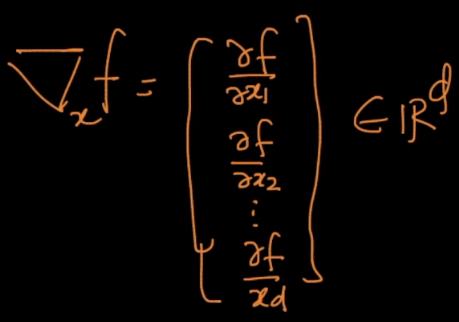 ∇ₓf = [ ∂f/∂x₁
∂f/∂x₂
⋮
∂f/x_d ] ∈ ℝᵈ